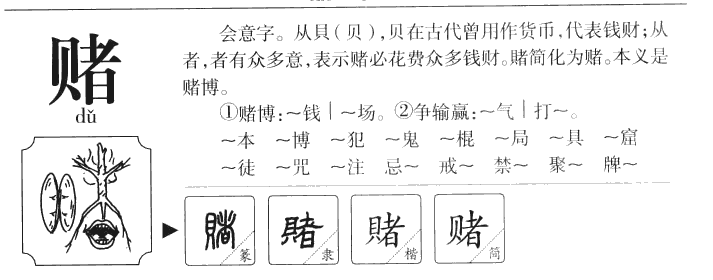 赌
dǔ
会意字。从貝(贝),贝在古代曾用作货币,代表钱财;从
者,者有众多意,表示赌必花费众多钱财。賭简化为赌。本义是
赌博。
①赌博:～钱|～场。②争输赢:～气|打～。
～本 ～博 ～犯 ～鬼 ～棍 ～局 ～具 ～窟
～徒 ～咒 ～注 忌～ 戒～ 禁～ 聚～ 牌～
賭 篆 賭 隶 賭 楷 赌 简